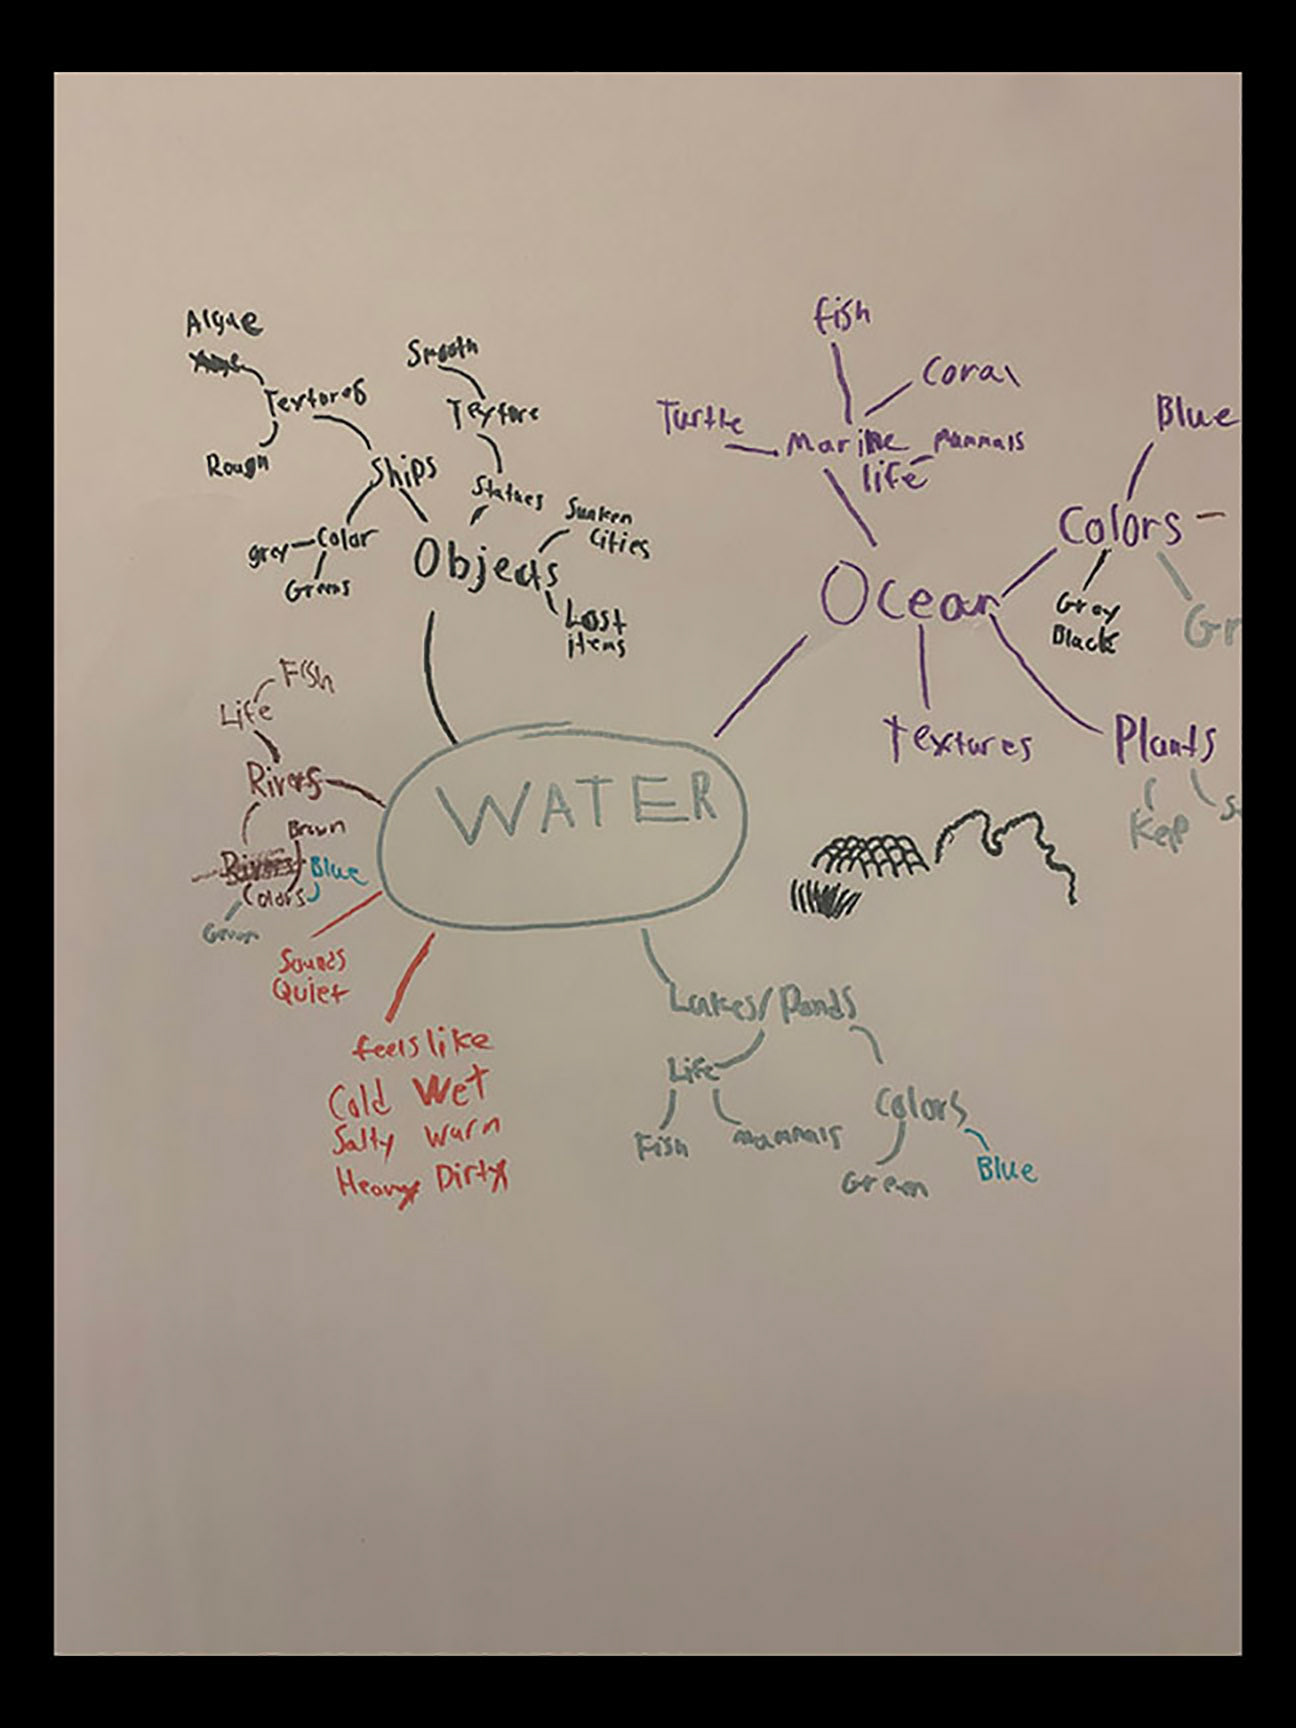 Algae
Textures
Rough
Ships
Color
grey
Greens
Smooth
Texture
Statues
Sunken
Cities
Objects
Lost
items
fish
Coral
Turtle
Marine
life
Mammals
Ocean
Blue
Colors
Gray
Black
Gr
Textures
Plants
Kelp
S
Fish
Life
Rivers
Brown
Rivers
Blue
Colors
Green
WATER
Sounds
Quiet
feels like
Cold Wet
Salty Warm
Heavy Dirty
Lakes/Ponds
Life
Fish
Mammals
Colors
Green
Blue